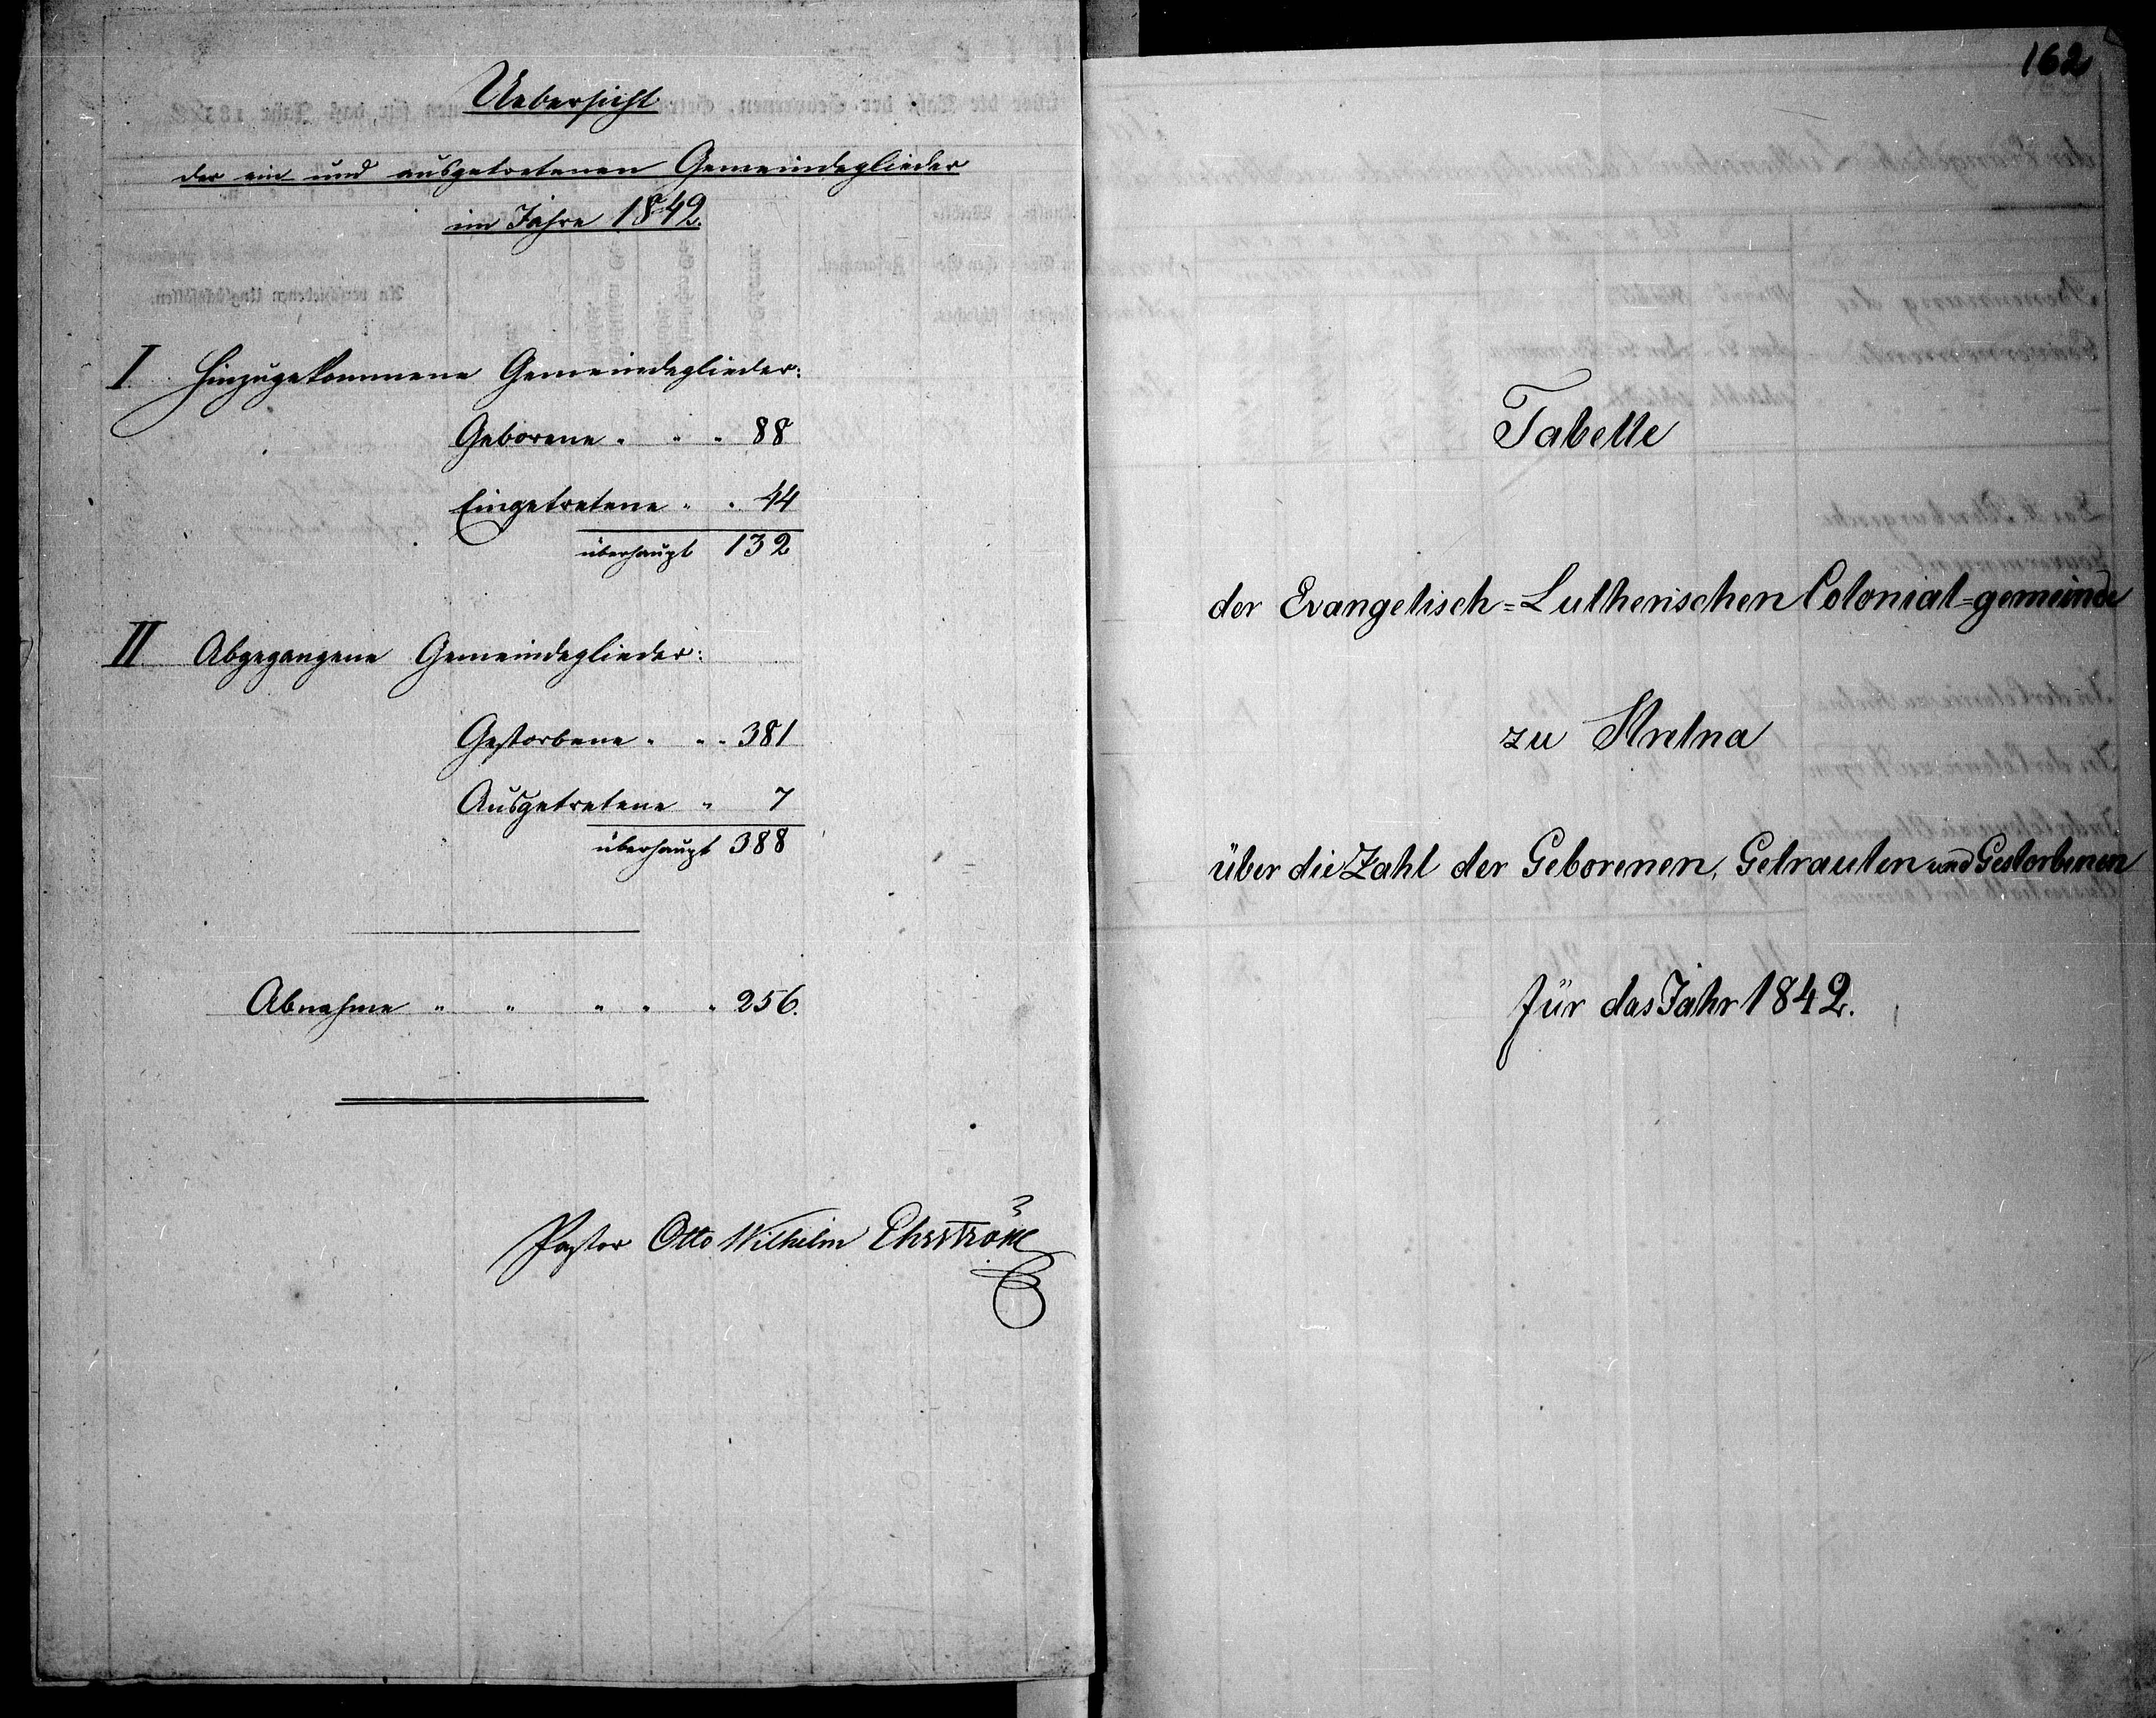 Uebersicht
der ein- und ausgetretenen Gemeindeglieder
im Jahre 1842.
I Hinzugekommene Gemeindeglieder:
Geborene " " " 88
Eingetretene " " 44
überhaupt 132
II Abgegangene Gemeindeglieder:
Gestorbene " " " 381
Ausgetretene " 7
überhaupt 388
Abnahme " " " " " 256.
Pastor Otto Wilhelm Ehrström
162
Tabelle
der Evangelisch=Lutherischen Colonial=gemeinde
zu Strelna
über die Zahl der Geborenen, Getrauten und Gestorbenen
für das Jahr 1842.